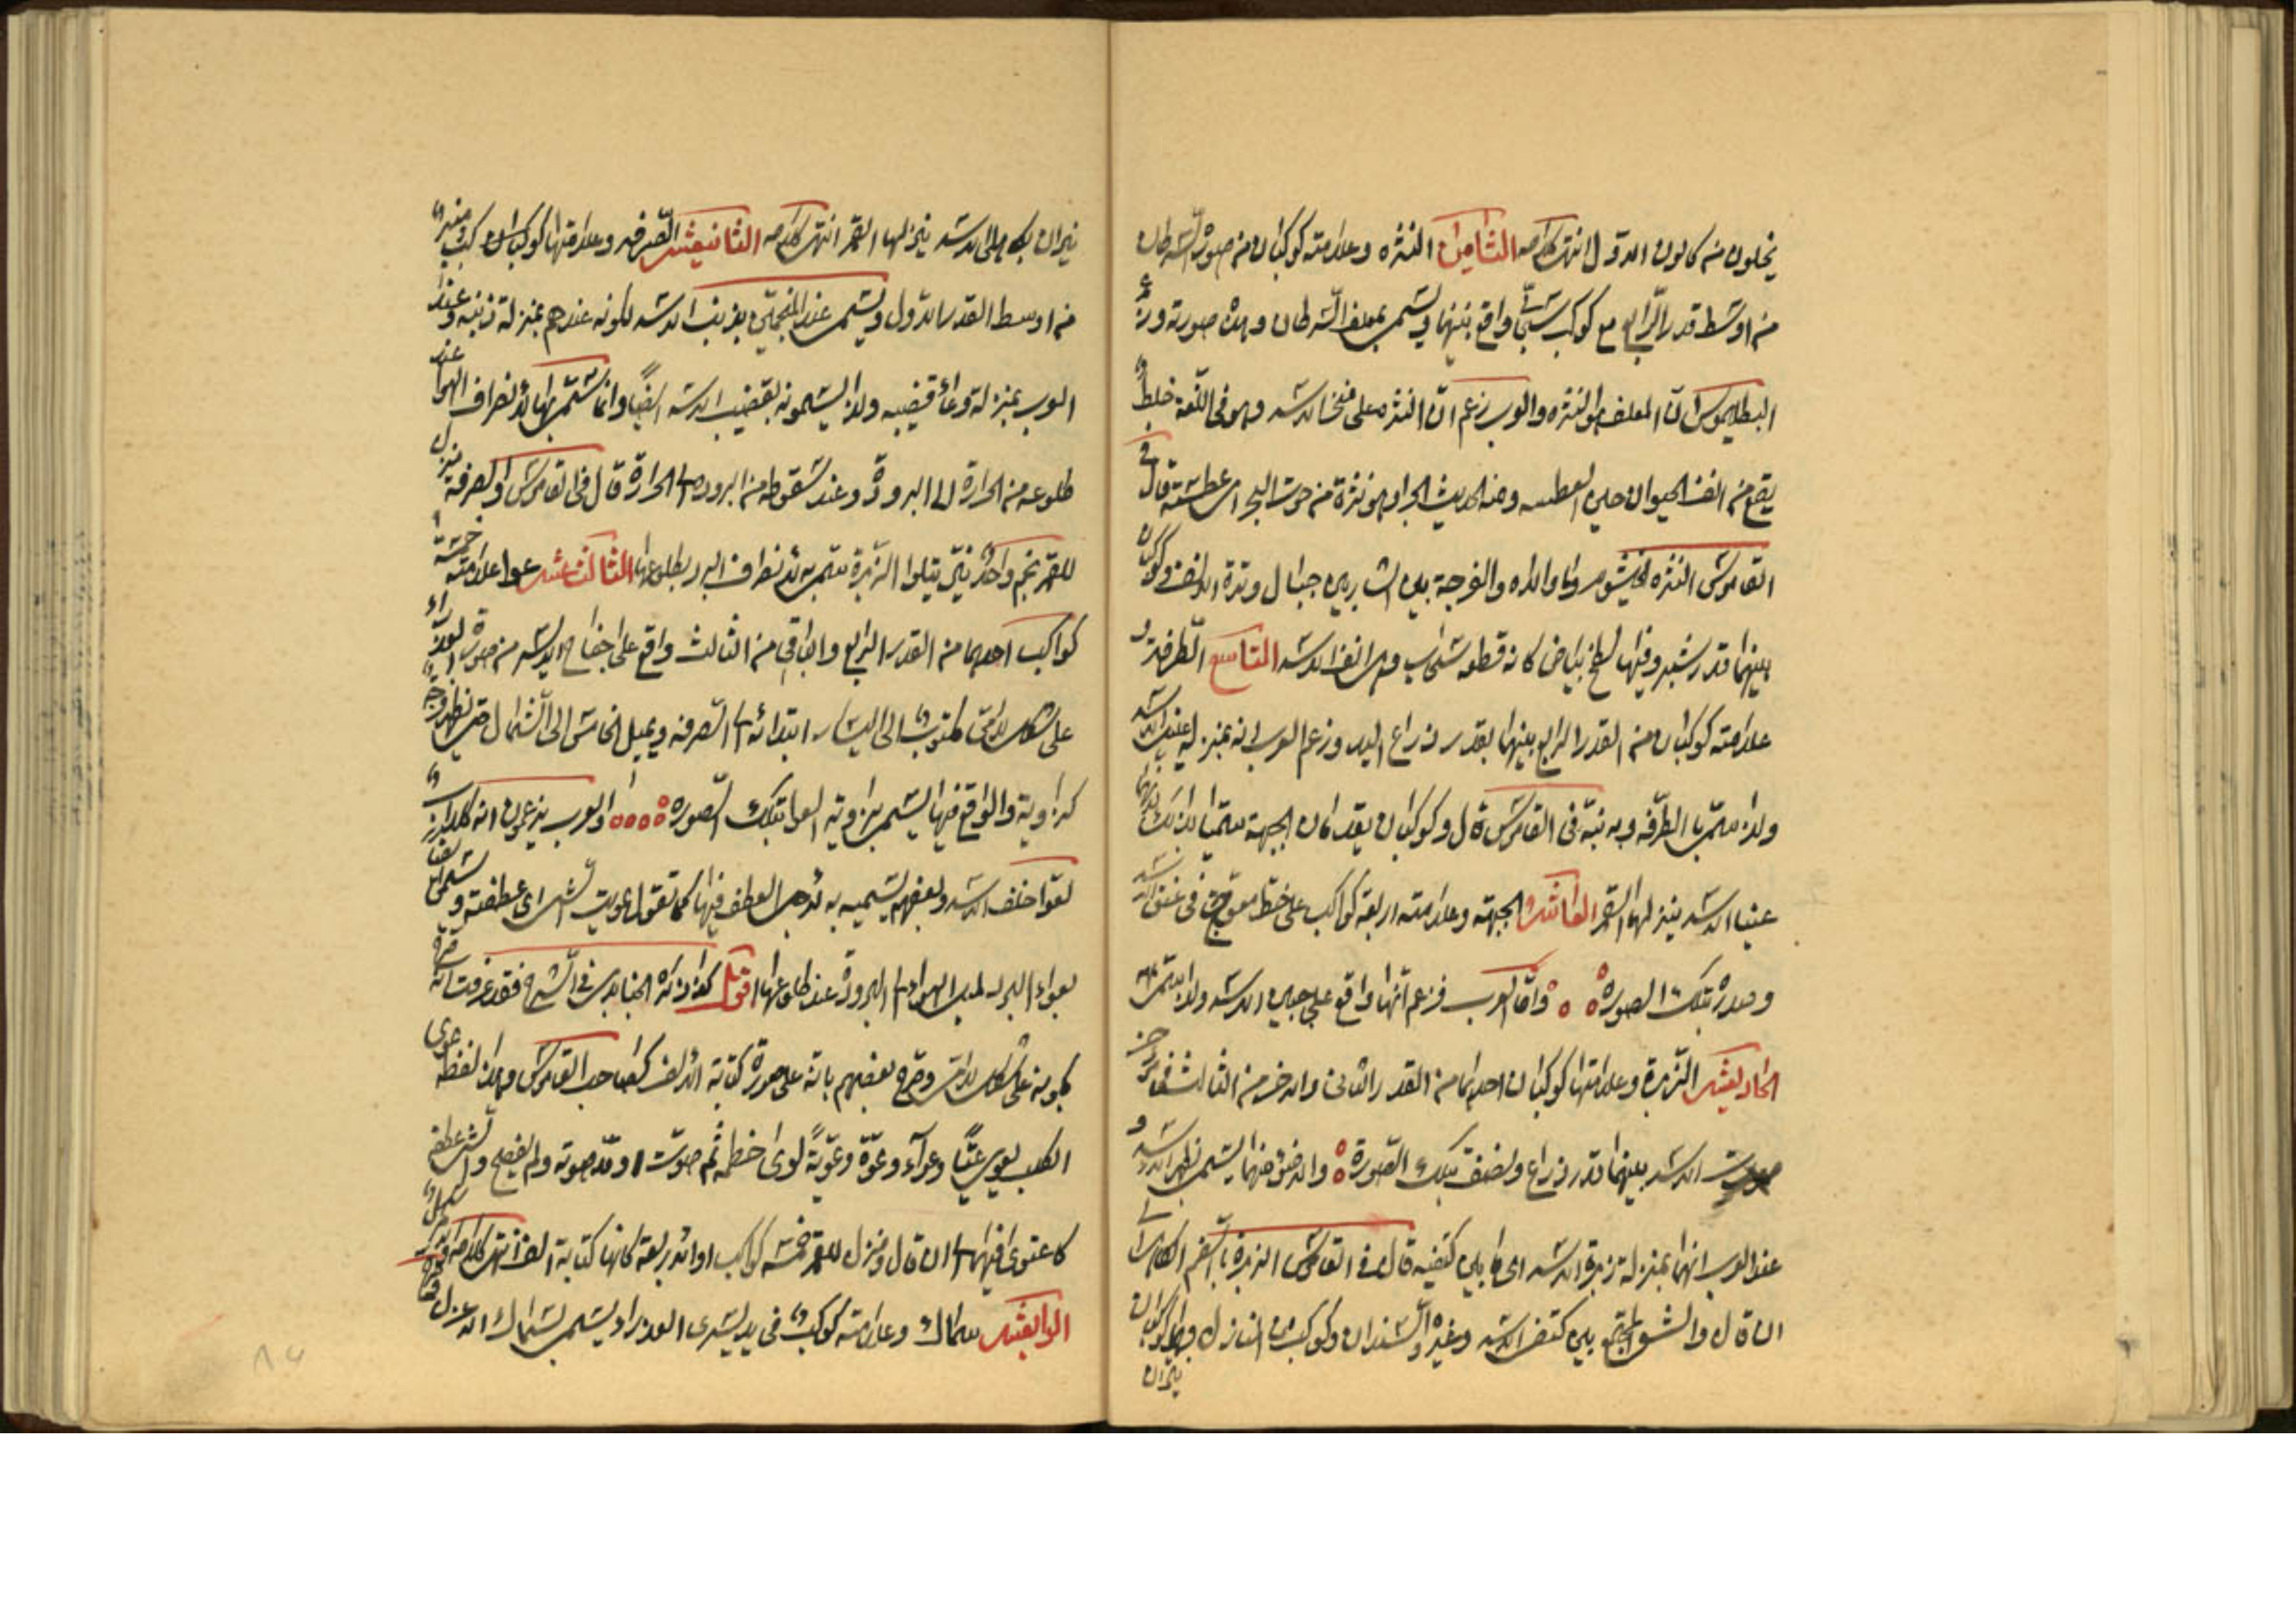 يخلون من كانون الاول انتهى كلامه الثامن النثره وعلامته كوكبان من صورة السرطان
من اوسط قدر الرابع مع كوكب سحابى واقع بينهما ويسمى بمعلف السرطان وهذه صورته وزعم
البطلميوس ان المعلف هو النثره والعرب زعم ان النثره على منخر الاسد وهو فى اللغة خلط
يقع من انف الحيوان حين العطسه ومنه الحديث الجراد هو نثرة من حوت البحر اى عطسته قال فى
القاموس النثره الخيشوم وما والاه والفرجة بين الشاربين حيال وترة الانف وكوكبان
بينهما قدر شبر وفيها لطخ بياض كانه قطعه سحاب وهى انف الاسد التاسع الطرفه و
علامته كوكبان من القدر الرابع بينهما بقدر ذراع اليد وزعم العرب انه بمنزله عين الاسد
ولذا سمى بالطرفه وبه نبه فى القاموس قال وكوكبان يقدمان الجبهة سميا بذلك لانهما
عينا الاسد ينزلهما القمر العاشر الجبهة وعلامته اربعة كواكب على خط معوج فى عنق الاسد
وصدره بتلك الصورة واما العرب فزعم انها واقع على جبين الاسد ولذا سمى بها
الحاديعشر الزبرة وعلامتها كوكبان احدهما من القدر الثانى والاخر من الثالث فى مؤخر
صورت الاسد بينهما قدر ذراع ونصف بتلك الصورة والاضوء منهما يسمى بظهر الاسد و
عند العرب انهما بمنزلة زبرة الاسد اى ما بين كتفيه قال فى القاموس الزبرة بالضم الكاهل الى
ان قال والشعر المجتمع بين كتفى الاسد وغيره والسندان وكوكب من المنازل وهما كوكبان
نيران
نيران بكاهلى الاسد ينزلها القمر انتهى كلامه الثانيعشر الصرفه وعلامتها كوكب منير
من اوسط القدر الاول ويسمى عند المنجمين بذنب الاسد لكونه عندهم بمنزلة ذنبه وعند
العرب بمنزلة وعاء قضيبه ولذا يسمونه بقضيب الاسد ايضا وانما سمى بها لانصراف الهواء عند
طلوعه من الحرارة الى البرودة وعند سقوطه من البرودة الى الحرارة قال فى القاموس والصرفة منزل
للقمر نجم واحد نير يتلوا الزبرة سمى به لانصراف البرد بطلوعها الثالثعشر عوا علامته خمسة
كواكب احدها من القدر الرابع والباقى من الثالث واقع على جناح الايسر من صورة العذراء
على شكل لام مكتوب الى اليسار ابتدائه الصرفه ويميل الخامس الى الشمال حتى يظهر وجه
كزاوية والواقع فيها يسمى بزاويه العوا بتلك الصورة والعرب يزعمون انه كلاب
تعوا خلف الاسد وبعضهم يسميه به لاجل العطف فيها كما تقول عويت الشى اى عطفته و
بعواء البرد لميل الهواء الى البرودة عند طلوعها اقول كذا ذكره الجنابدى فى الشرح فقد عرفت انه صرح
بكونه على شكل لام وصرح بعضهم بانه على صورة كتابة الالف كصاحب القاموس وهذا لفظه عوى
الكلب يعوى عيا وعواء وعوة وعوية لوى خطمه ثم صوت او مد صوته ولم يفصح والشى عطفه
كاعتوى فيهما الى ان قال ومنزل للقمر خمسة كواكب او اربعة كانها كتابة الف انتهى كلامه
الرابعشر سماك وعلامته كوكب فى يد يسرى العذراء ويسمى بسماك الاعزل